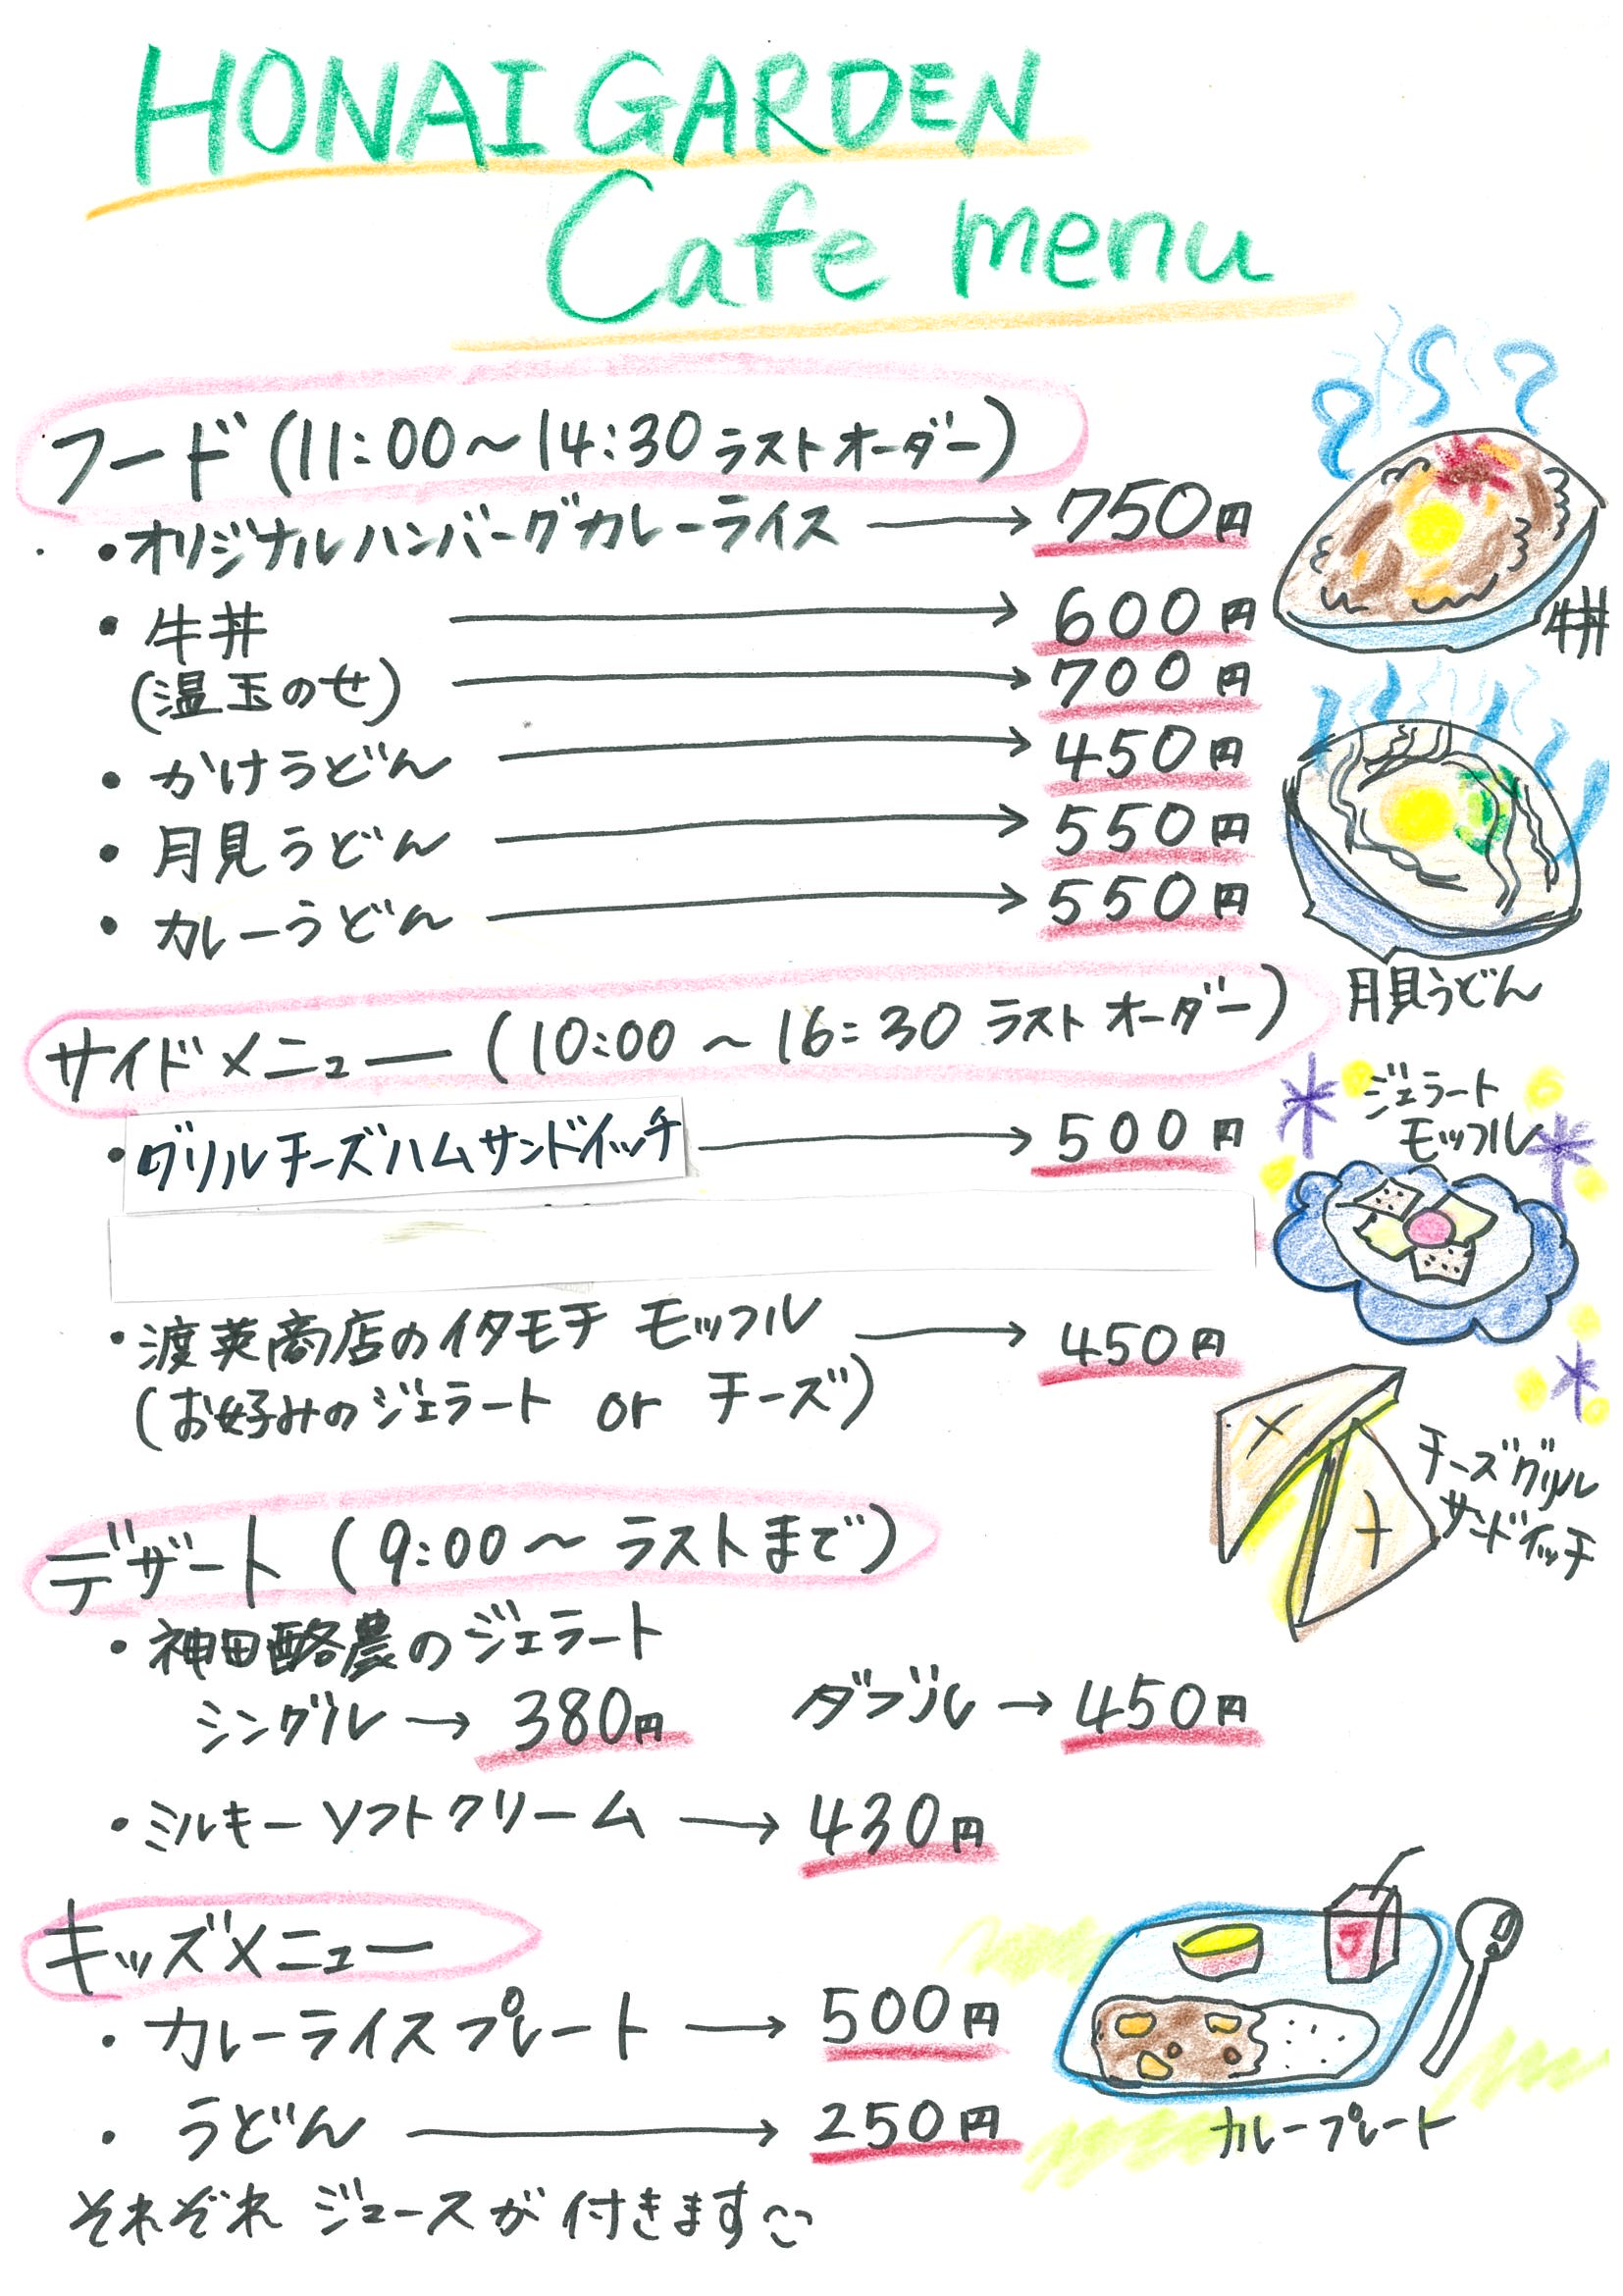 HONAI GARDEN
Cafe menu
フード (11:00～14:30 ラストオーダー)
・オリジナルハンバーグカレーライス → 750円
・牛丼 → 600円
(温玉のせ) → 700円
・かけうどん → 450円
・月見うどん → 550円
・カレーうどん → 550円
牛丼
月見うどん
サイドメニュー (10:00 ～ 16:30 ラストオーダー)
・グリルチーズハムサンドイッチ → 500円
・渡英商店のイタモチ モッフル → 450円
(お好みのジェラート or チーズ)
ジェラート
モッフル
チーズグリル
サンドイッチ
デザート (9:00～ ラストまで)
・神田酪農のジェラート
シングル → 380円 ダブル → 450円
・ミルキーソフトクリーム → 430円
キッズメニュー
・カレーライスプレート → 500円
・うどん → 250円
それぞれ ジュースが付きます
J
カレープレート